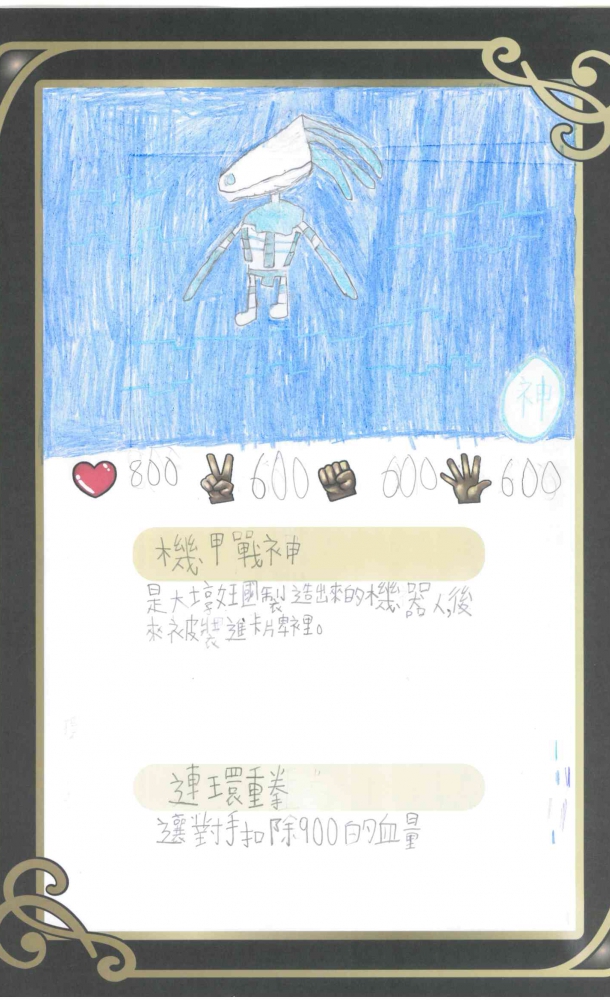 神
800 600 600 600
機甲戰神
是大埻王國製造出來的機器人,後
來被裝進卡片裡。
連環重拳
讓對手扣除900的血量